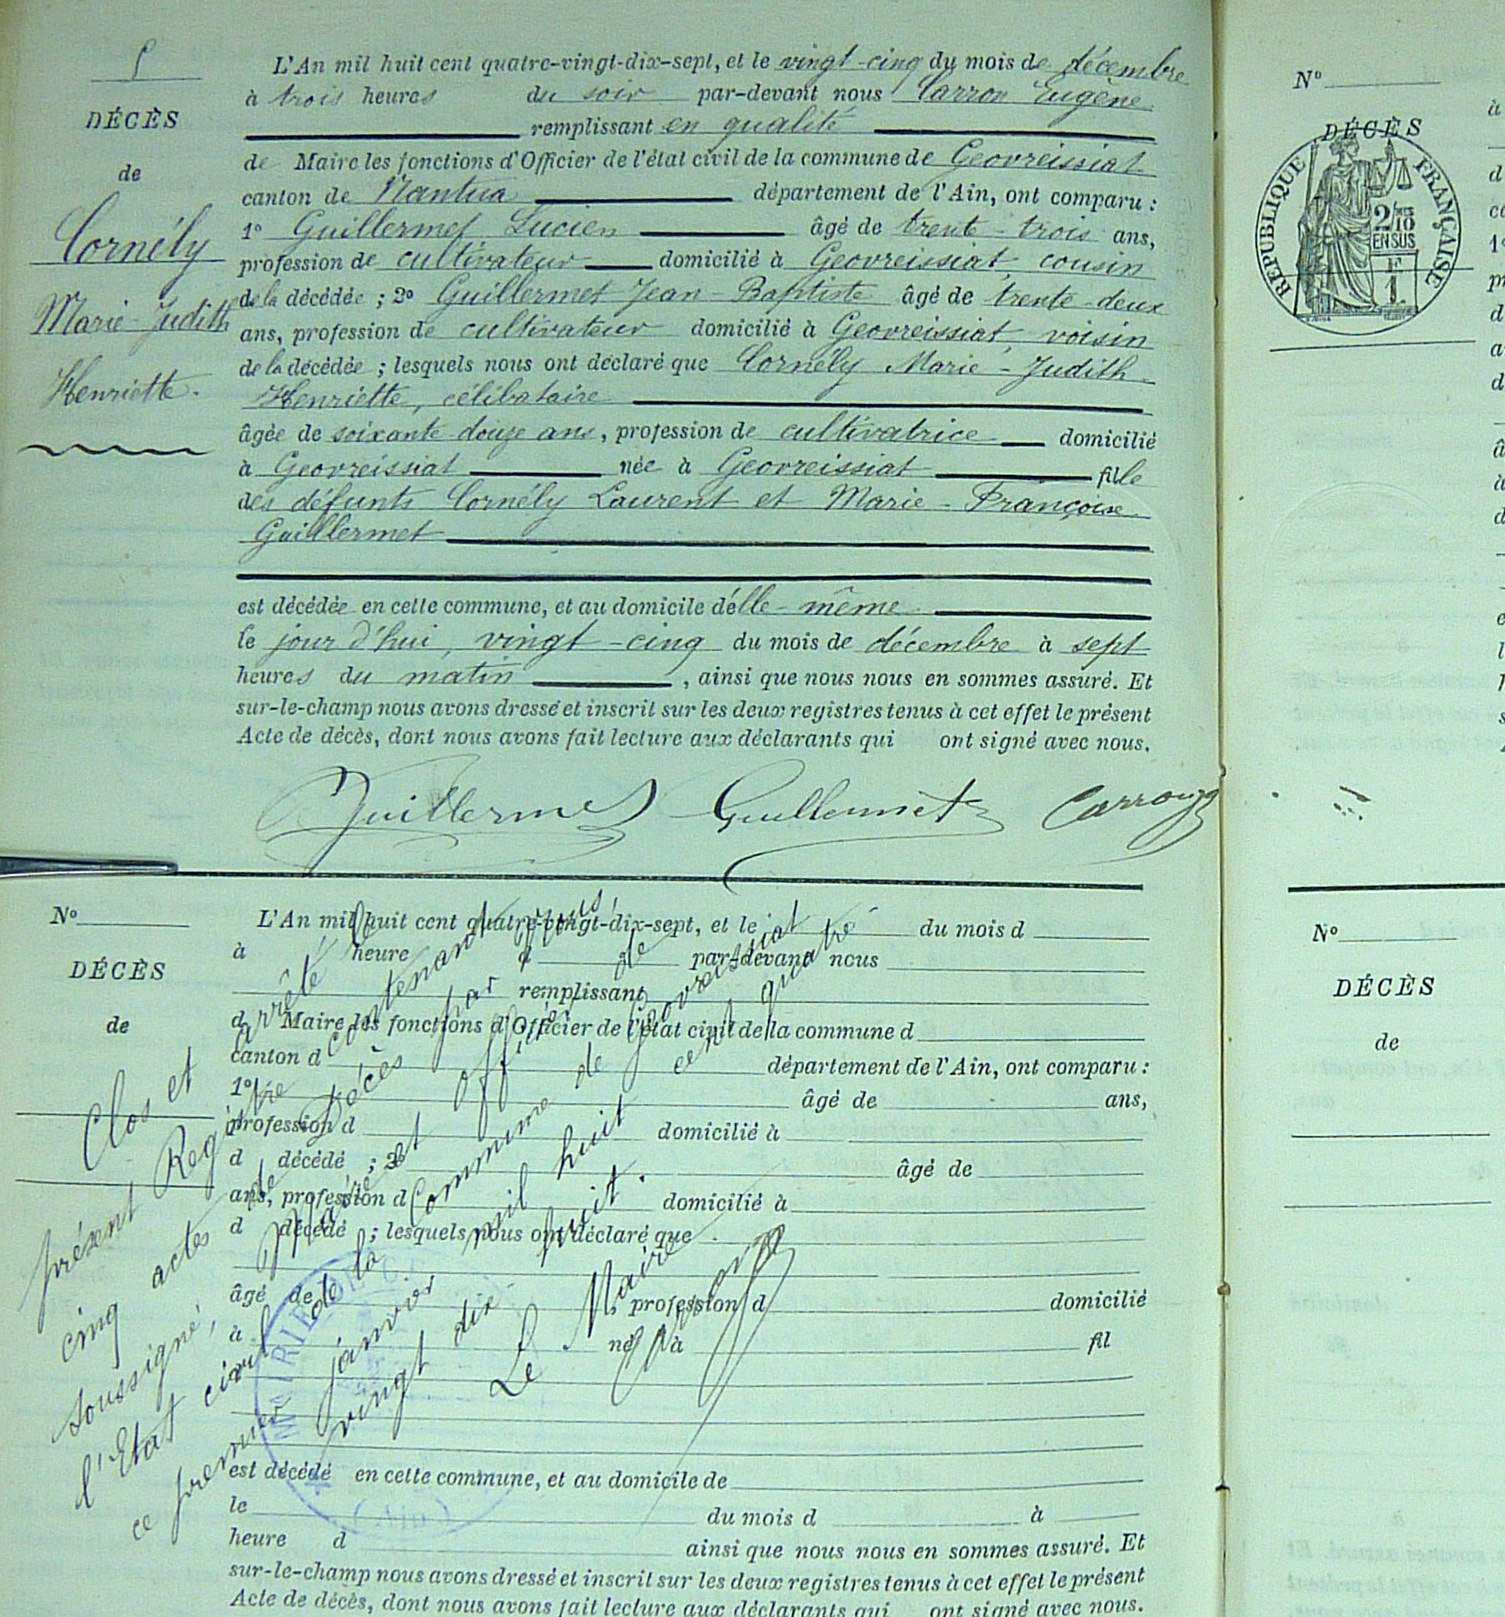 5
DÉCÈS
de
Cornély
Marie-Judith
Henriette.
L'An mil huit cent quatre-vingt-dix-sept, et le vingt-cinq du mois de décembre
à trois heures du soir par-devant nous Carron Eugène
remplissant en qualité
de Maire les fonctions d'Officier de l'état civil de la commune de Geovreissiat
canton de Nantua département de l'Ain, ont comparu :
1º Guillermet Lucien âgé de trente-trois ans,
profession de cultivateur domicilié à Geovreissiat, cousin
de la décédée ; 2º Guillermet Jean-Baptiste âgé de trente-deux
ans, profession de cultivateur domicilié à Geovreissiat, voisin
de la décédée ; lesquels nous ont déclaré que Cornély Marie-Judith-
Henriette, célibataire
âgée de soixante douze ans, profession de cultivatrice domicilié
à Geovreissiat née à Geovreissiat fille
des défunts Cornély Laurent et Marie-Françoise
Guillermet
est décédée en cette commune, et au domicile d'elle-même
le jour d'hui, vingt-cinq du mois de décembre à sept
heures du matin, ainsi que nous nous en sommes assuré. Et
sur-le-champ nous avons dressé et inscrit sur les deux registres tenus à cet effet le présent
Acte de décès, dont nous avons fait lecture aux déclarants qui ont signé avec nous.
Guillermet Guillermet Carron
Nº
DÉCÈS
de
L'An mil huit cent quatre-vingt-dix-sept, et le du mois d
à heure d par-devant nous
remplissant
d Maire les fonctions d'Officier de l'état civil de la commune d
canton d département de l'Ain, ont comparu :
1º âgé de ans,
profession d domicilié à
d décédé ; 2º âgé de
ans, profession d domicilié à
d décédé ; lesquels nous ont déclaré que
âgé de profession d domicilié
à né à fil
est décédé en cette commune, et au domicile de
le du mois d à
heure d ainsi que nous nous en sommes assuré. Et
sur-le-champ nous avons dressé et inscrit sur les deux registres tenus à cet effet le présent
Acte de décès, dont nous avons fait lecture aux déclarants qui ont signé avec nous.
Clos et arrêté le
présent Registre contenant
cinq actes de Décès par nous,
soussigné, Maire et officier de
l'Etat civil de la Commune de Geovreissiat
ce premier janvier mil huit cent quatre
vingt dix huit.
Le Maire
Carron
MAIRIE DE
(Ain)
Nº
DÉCÈS
RÉPUBLIQUE FRANÇAISE
2/10
EN SUS
F
1.
Nº
DÉCÈS
de